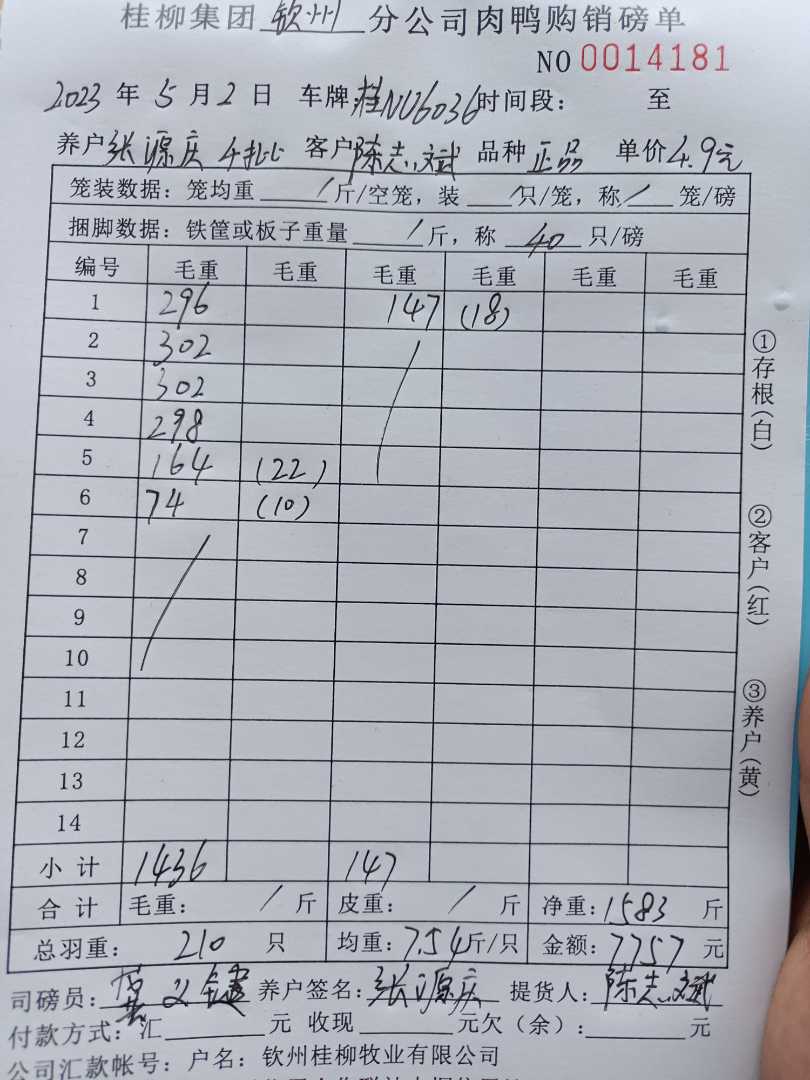 桂柳集团钦州分公司肉鸭购销磅单
NO 0014181
2023年5月2日 车牌:桂NU6036 时间段: 至
养户张源庆 客户陈志斌 品种正品 单价4.9元
笼装数据:笼均重/斤/空笼,装/只/笼,称/笼/磅
捆脚数据:铁筐或板子重量/斤,称40只/磅
编号 毛重 毛重 毛重 毛重 毛重 毛重
1 296 147 (18)
2 302
3 302
4 298
5 164 (22)
6 74 (10)
7
8
9
10
11
12
13
14
小计 1436 147
合计 毛重: / 斤 皮重: / 斤 净重:1583斤
总羽重: 210 只 均重:7.54斤/只 金额:7757元
司磅员: 养户签名:张源庆 提货人:陈志斌
付款方式:汇 元 收现 元欠(余): 元
公司汇款帐号:户名:钦州桂柳牧业有限公司
①存根(白)
②客户(红)
③养户(黄)